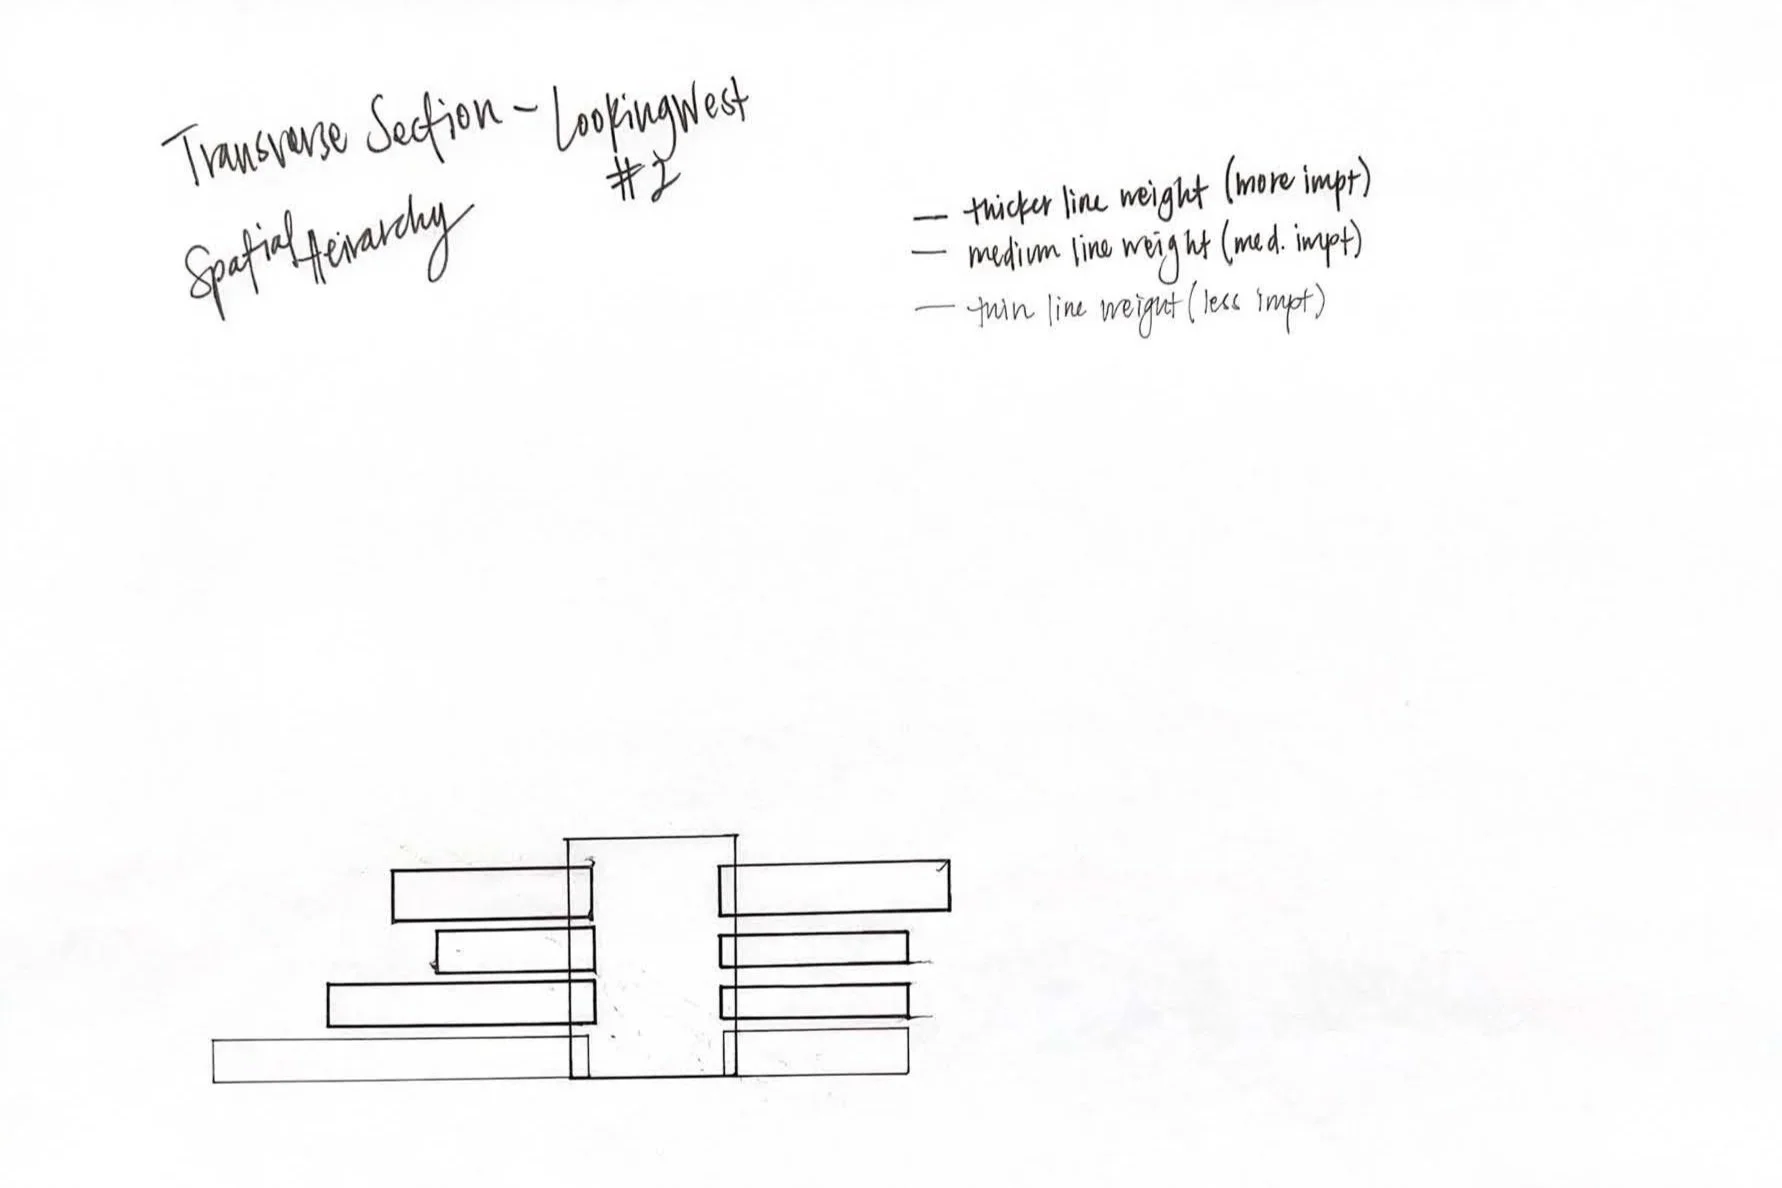 Transverse Section - Looking West
#2
Spatial Heirarchy
— thicker line weight (more impt)
— medium line weight (med. impt)
— thin line weight (less impt)